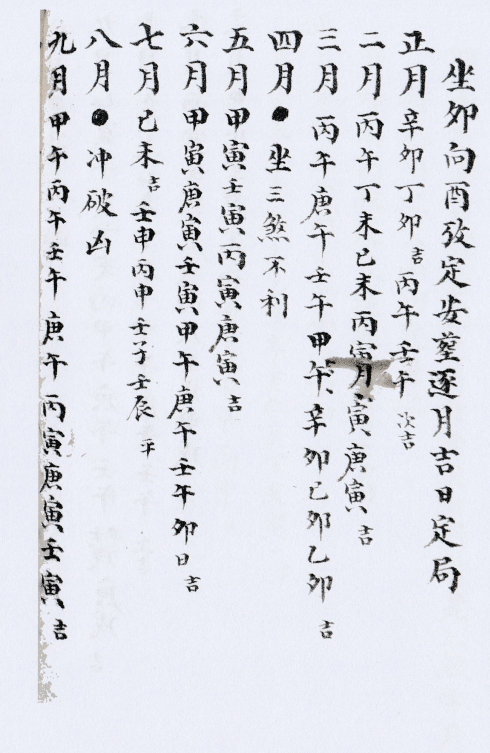 坐卯向酉攷定安葬逐月吉日定局
正月 辛卯丁卯吉丙午壬午次吉
二月 丙午丁未己未丙寅寅庚寅吉
三月 丙午庚午壬午甲午辛卯己卯乙卯吉
四月●坐三煞不利
五月甲寅壬寅丙寅庚寅吉
六月甲寅庚寅壬寅甲午庚午壬午卯日吉
七月己未吉壬申丙申壬子壬辰平
八月●冲破凶
九月甲午丙午壬午庚午丙寅庚寅壬寅吉